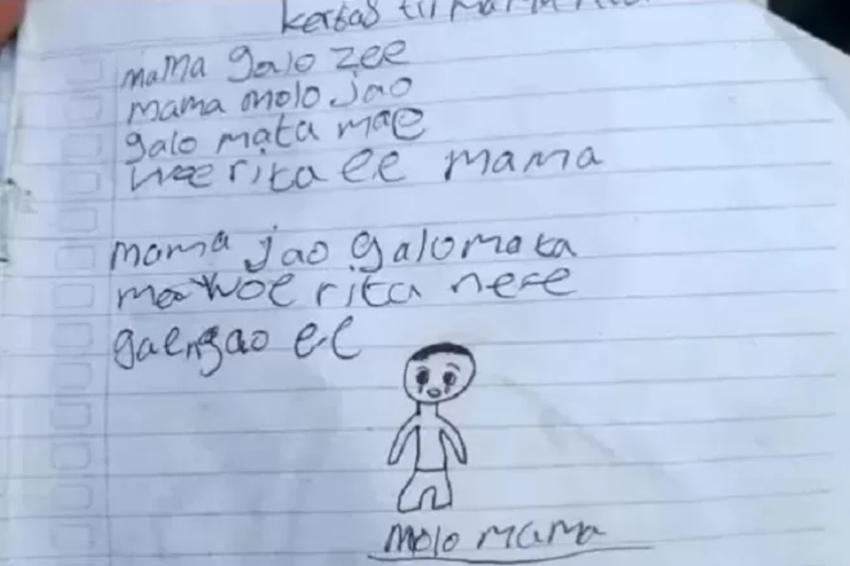 kertas tii mama
mama galo zee
mama molo jao
galo mata mae
woe rita ee mama
mama jao galo mata
mae woe rita nere
gaengao ee
molo mama